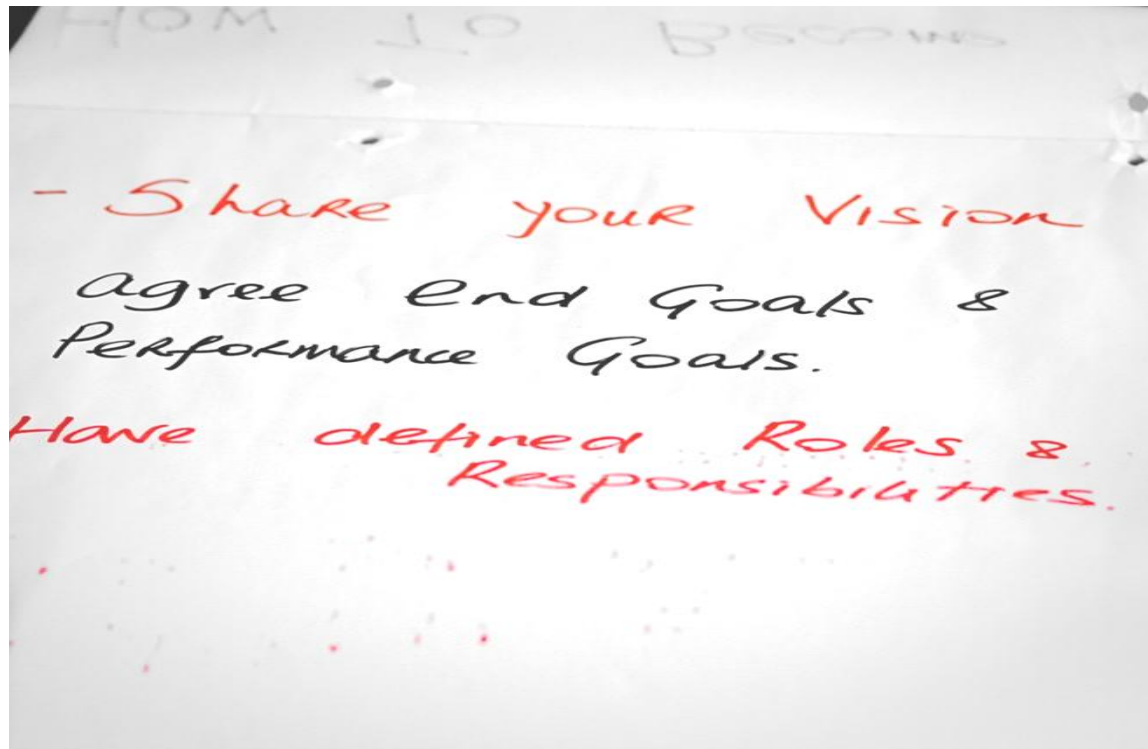 HOW TO Become
- Share your Vision
agree End Goals &
Performance Goals.
Have defined Roles &
Responsibilities.